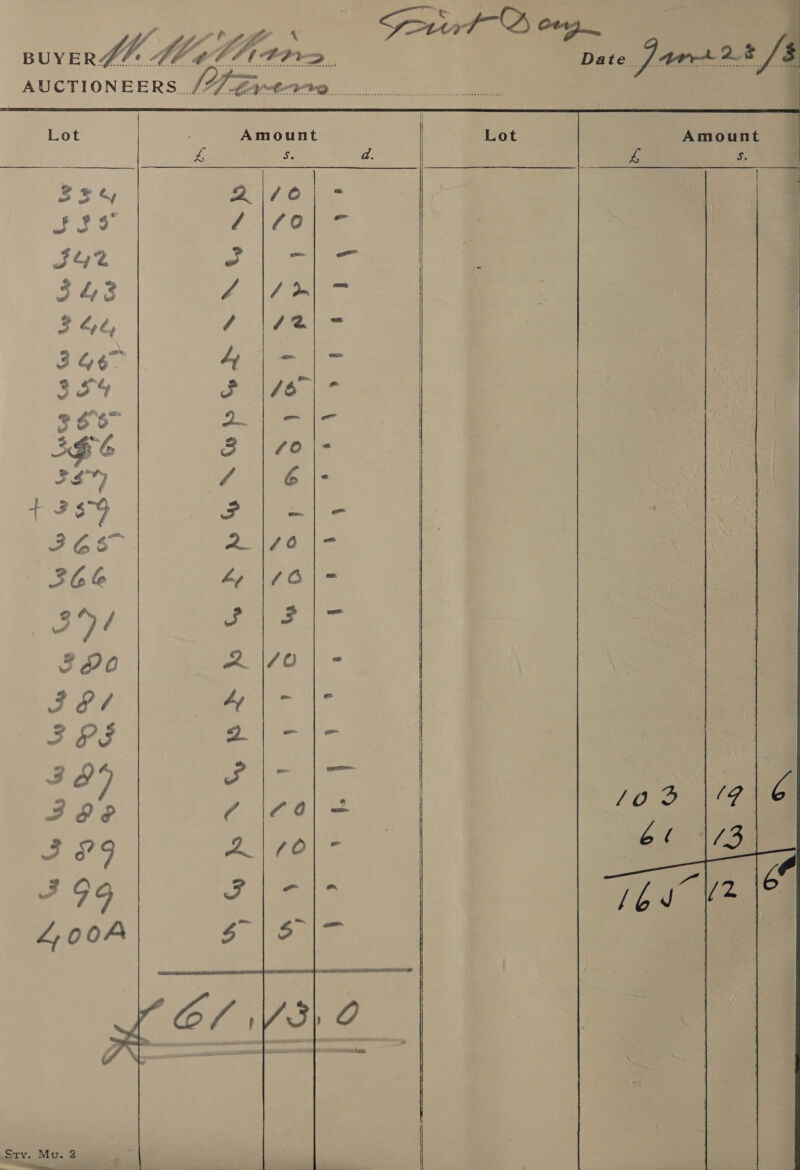 First Day
BUYER W. Williams Date
AUCTIONEERS
Lot Amount Lot Amount
£ s. d. £ s.
334 2 10 -
335 1 10 -
342 3 - -
343 1 12 -
344 1 12 -
345 4 - -
354 3 15 -
355 2 - -
356 3 10 -
357 1 6 -
+ 359 3 - -
365 2 10 -
366 4 10 -
371 3 3 -
380 2 10 -
381 4 - -
383 2 - -
387 3 - -
388 1 10 - 103 19 6
389 2 10 - 61 13
399 3 - - 165 12 6
400A 5 5 -
£ 61, 13, 0
Sty. Mu. 2